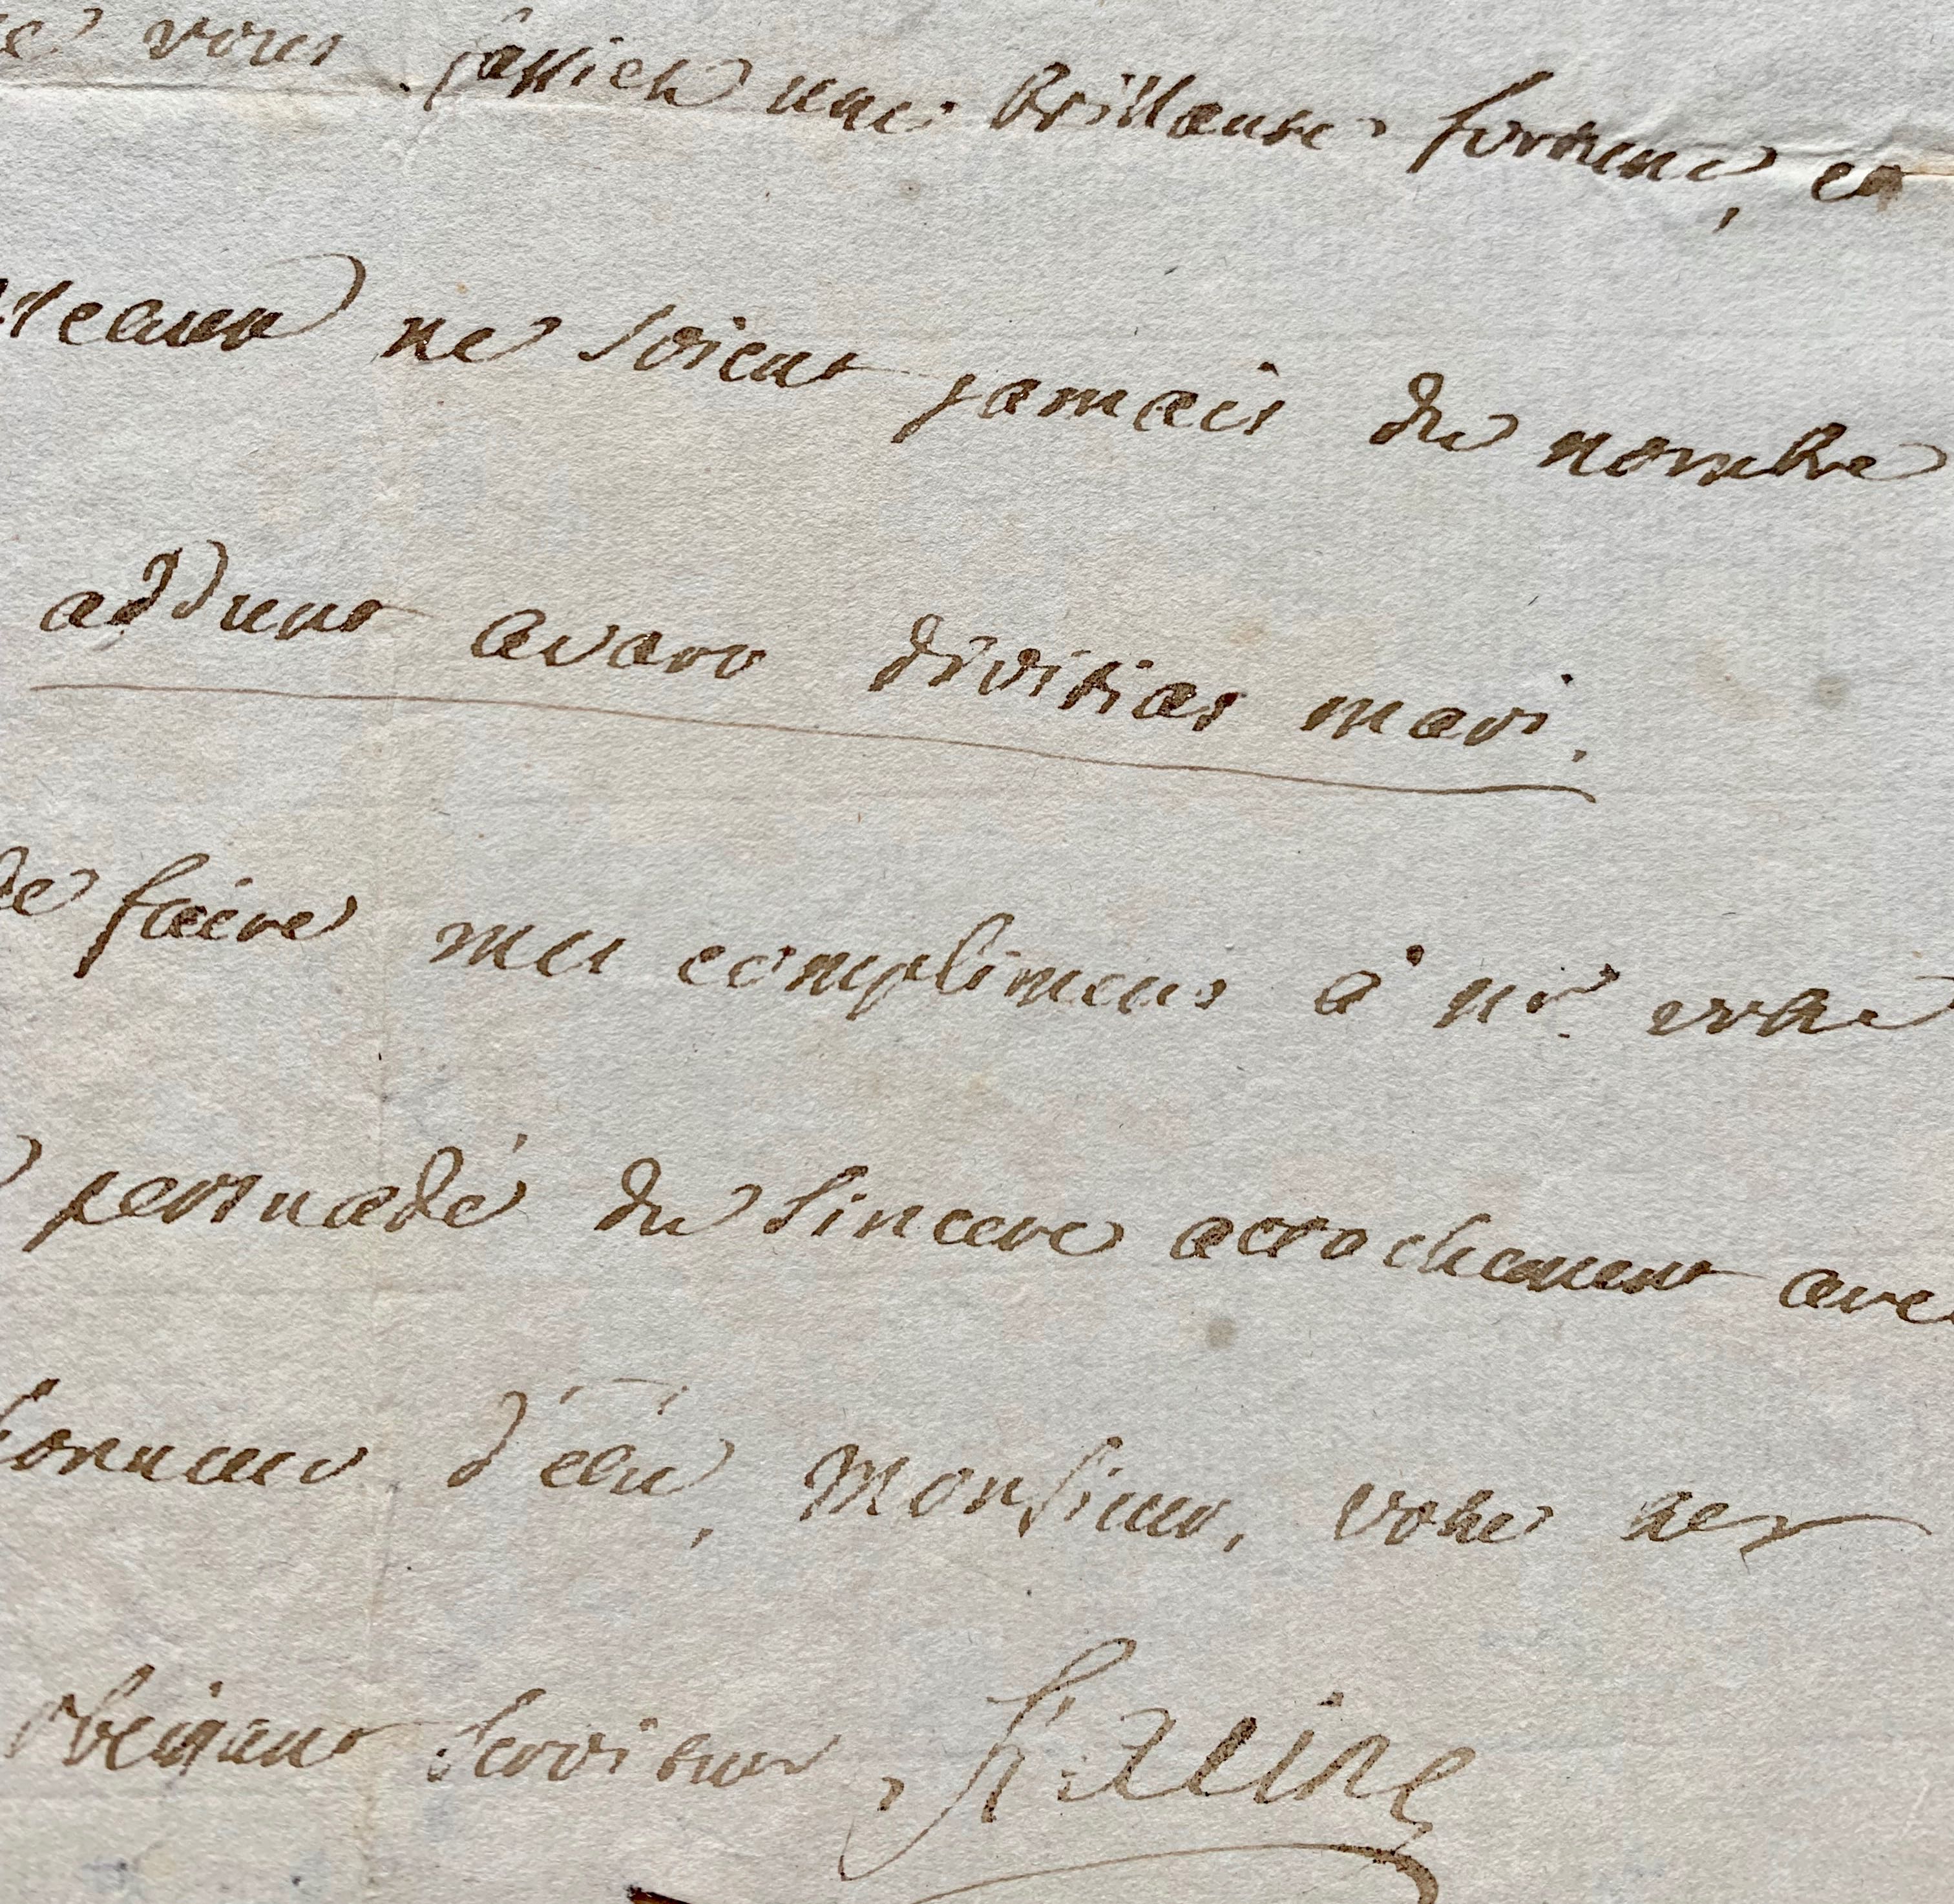 vous fassiez une brillante fortune, et
ne soient jamais du nombre
addunt avaro divitias mari.
de faire mes complimens à mr. votre
persuadé du sincere attachement avec
honneur d'etre, Monsieur, votre tres
obeissant serviteur